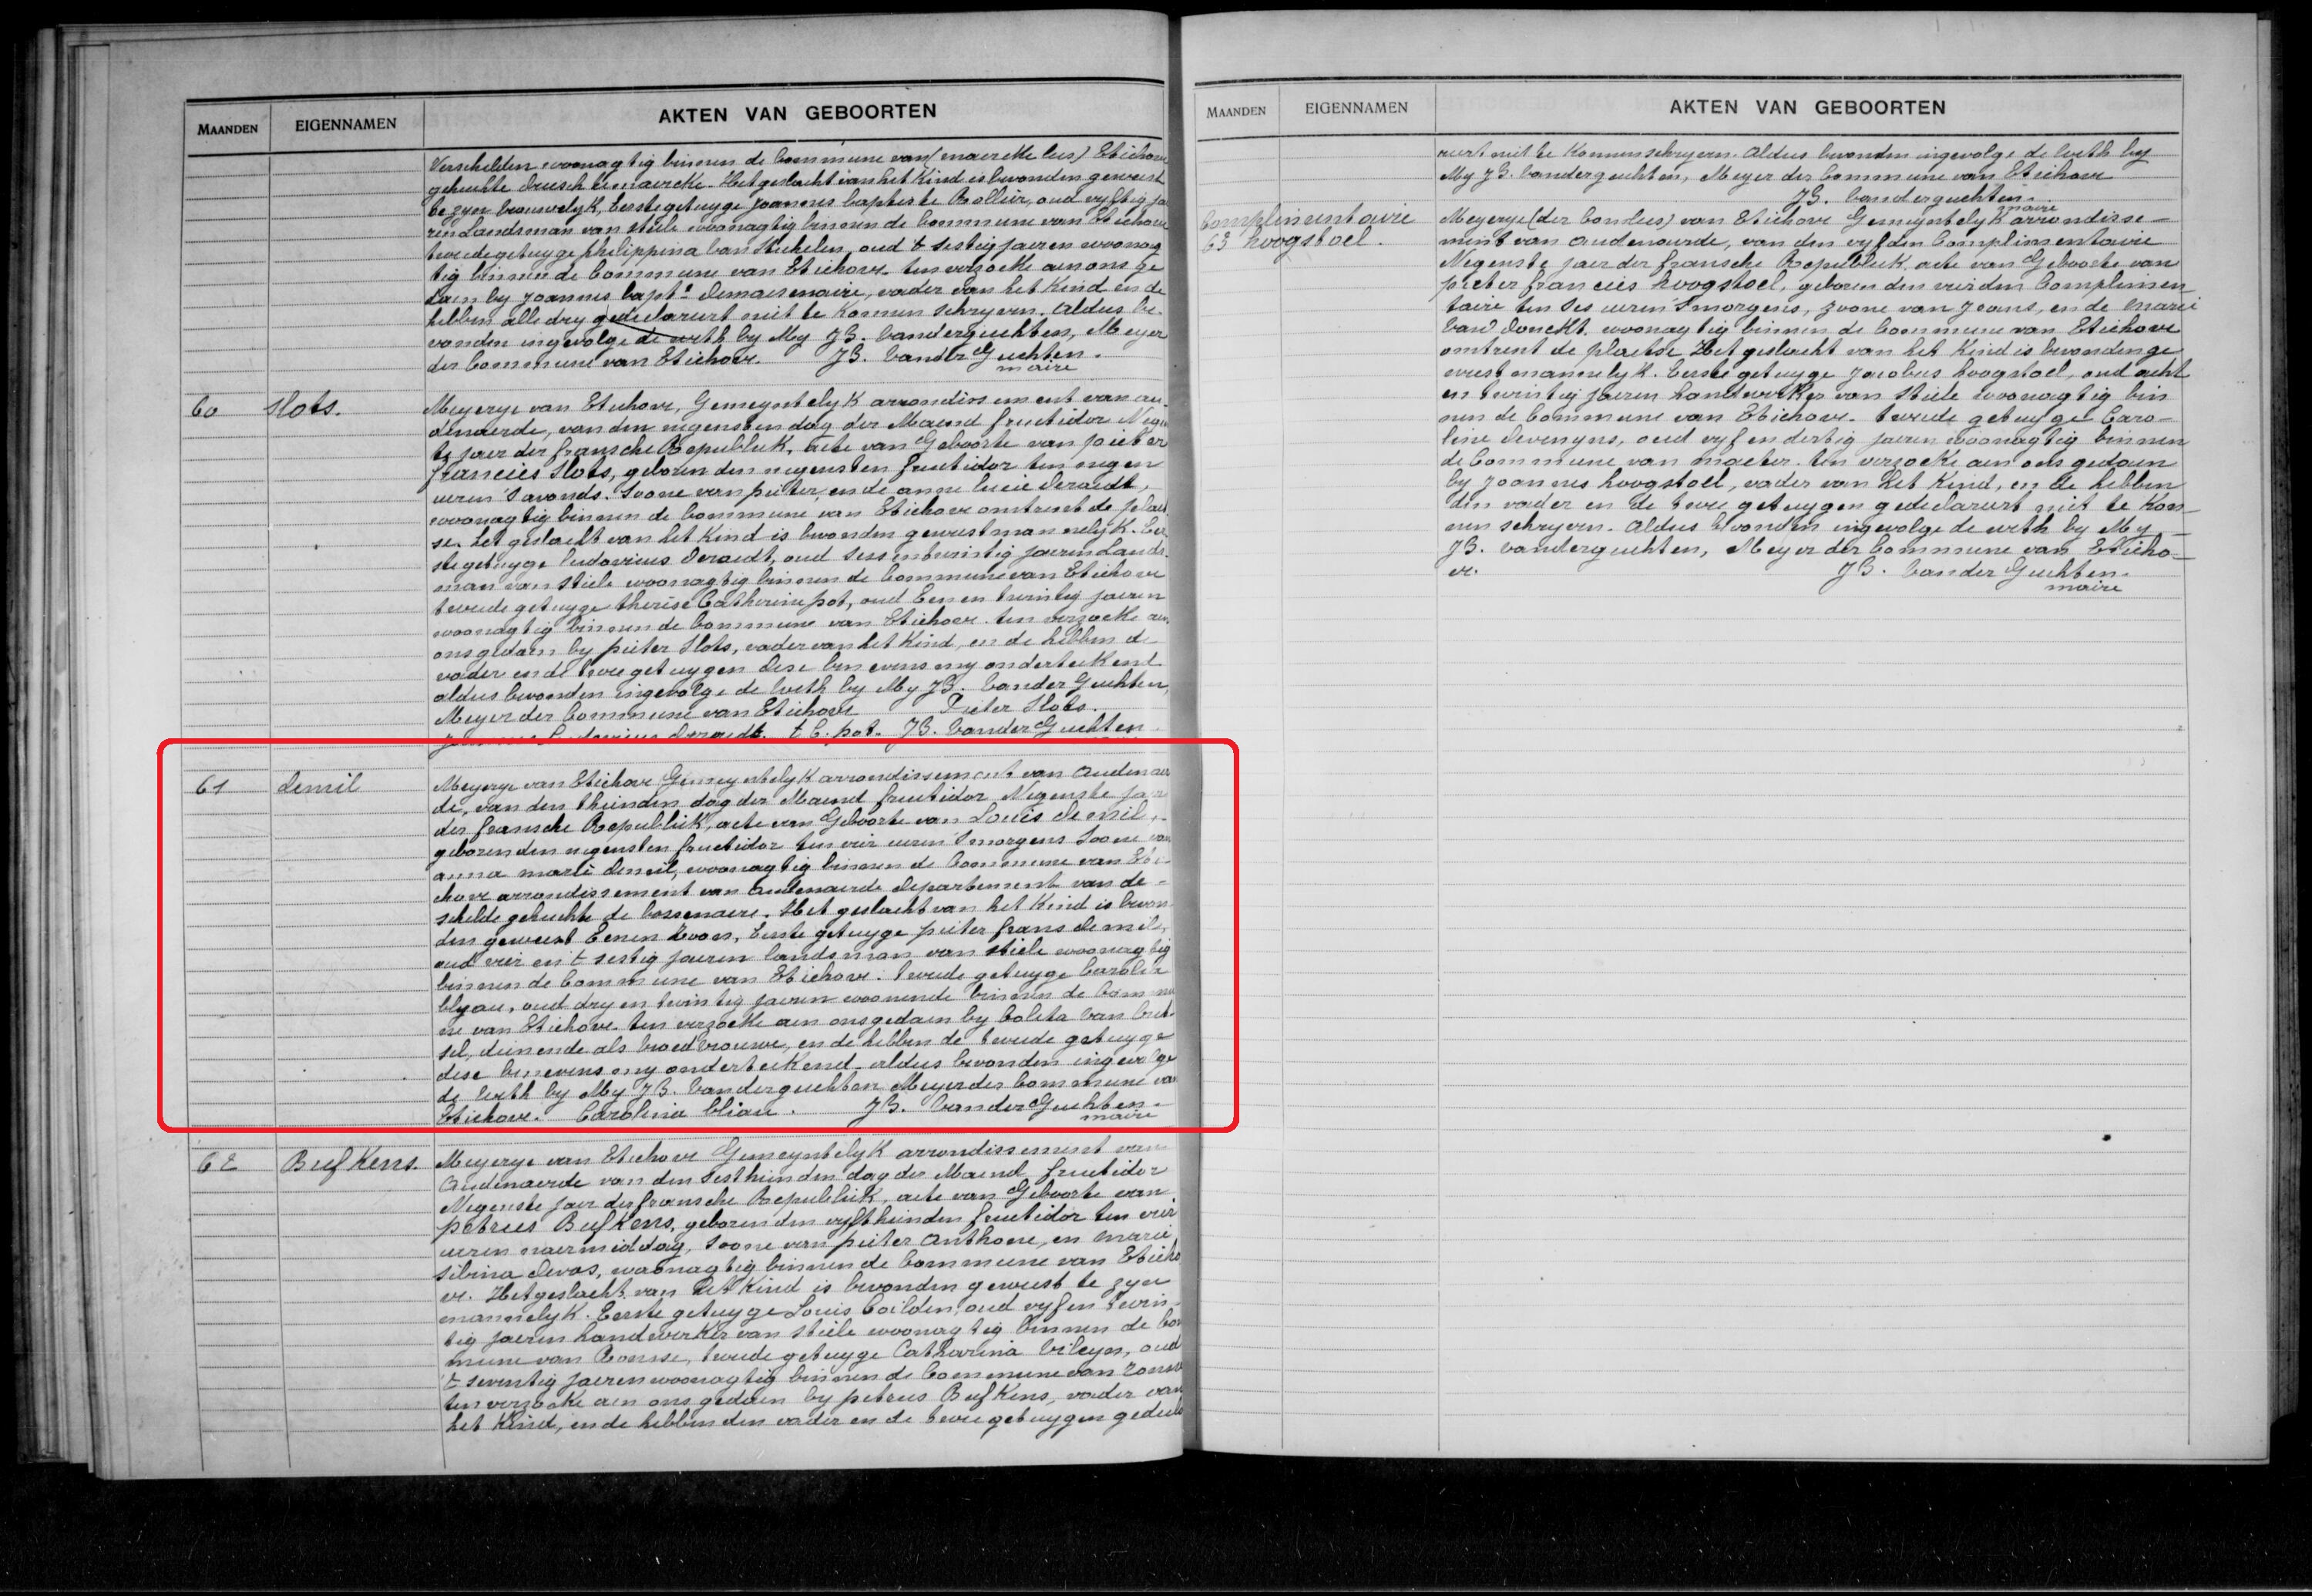 AKTEN VAN GEBOORTEN
MAANDEN
EIGENNAMEN
Verschelden woonagtig binnen de Commune van (maercke lees) Etichove
gehuchte driesch te maercke. Het geslacht van het Kind is bevonden geweest
te zyn vrouwelyk, Eerste getuyge joannes baptiste Rollier, oud vyftig ja
ren Landsman van stiele woonagtig binnen de Commune van Etichove
tweede getuyge philippina van Stichelen, oud t sestig jaeren woonag
tig binnen de Commune van Etichove. ten versoeke aen ons ge
daen by joannes bapte Demaesenaire, vader van het Kind en de
hebben alle dry gedeclareert niet te konnen schryven. Aldus be-
vonden ingevolge de weth by My JB. Vanderguchten, Meyer
der Commune van Etichove. JB. Vander Guchten.
maire
60 Slots.
Meyerye van Etichove, Gemeyntelyk arrondissement van au-
denaerde, van den negensten dag der Maend fructidor Nege
te jaer der fransche Republiek, acte van Geboorte van pieter
francies Slots, geboren den negensten fructidor ten negen
ueren S'avonds. Soone van pieter, en de anne lucie deraedt,
woonagtig binnen de Commune van Etichove omtrent de plaet
se. het geslacht van het Kind is bevonden geweest mannelyk. Eer
ste getuyge ludovicus deraedt, oud ses en twintig jaeren Lands-
man van stiele woonagtig binnen de Commune van Etichove
tweede getuyge therese Catherine pot, oud Een en twintig jaeren
woonagtig binnen de Commune van Etichove. ten versoeke aen
ons gedaen by pieter Slots, vader van het Kind, en de hebben de
vader en de twee getuygen dese benevens my onderteekend
aldus bevonden ingevolge de weth by My JB. Vander Guchten,
Meyer der Commune van Etichove Pieter Slots.
Ludovicus deraedt. t C. pot. JB. Vander Guchten
61 demil
Meyerye van Etichove Gemeyntelyk arrondissement van Audenaer
de, van den thienden dag der Maend fructidor Negenste jaer
der fransche Republiek, acte van Geboorte van Louis demil,
geboren den negensten fructidor ten vier ueren S'morgens Soone van
anna marie demil, woonagtig binnen de Commune van Eti-
chove arrondissement van Audenaerde departement van de-
schelde gehuchte de bossenaere. Het geslacht van het Kind is bevon
den geweest Eenen Zoon, Eerste getuyge pieter frans demil,
oud vier en t sestig jaeren landsman van stiele woonagtig
binnen de Commune van Etichove. tweede getuyge Carolin
blyau, oud dry en twintig jaeren woonende binnen de Commu
ne van Etichove. ten versoeke aen ons gedaen by Coleta Van
sel, dienende als vroedvrouwe, en de hebben de tweede getuyge
dese benevens my onderteekend. aldus bevonden ingevolge
de weth by My JB. Vanderguchten Meyer der Commune va
Etichove. Carolina bliau. JB. Vander Guchten.
maire
62 Bufkens.
Meyerye van Etichove Gemeyntelyk arrondissement van
Audenaerde van den sesthienden dag der Maend fructidor
Negenste jaer der fransche Republiek, acte van Geboorte van
petrus Bufkens, geboren den vyfthienden fructidor ten vier
ueren naermiddag, Soone van pieter Anthone, en Marie
sibina devos, woonagtig binnen de Commune van Eticho
ve. Het geslacht van het Kind is bevonden geweest te zyn
mannelyk. Eerste getuyge Louis Coilden, oud vyf en twin-
tig jaeren handwerker van stiele woonagtig binnen de Com
mune van Ronsse, tweede getuyge Catharina Vileyn, oud
t seventig jaeren woonagtig binnen de Commune van ronsse
ten versoeke aen ons gedaen by petrus Bufkens, vader van
het Kind, en de hebben den vader en de twee getuygen gedecla
AKTEN VAN GEBOORTEN
MAANDEN
EIGENNAMEN
reert niet te konnen schryven. Aldus bevonden ingevolge de weth by
My JB. Vanderguchten, Meyer der Commune van Etichove
JB. Vanderguchten.
maire
Complimentaire
63 hoogstoel.
Meyerye (der Canslus) van Etichove Gemeyntelyk arrondisse-
ment van Audenaerde, van den vyfden Complimentaire
Negenste jaer der fransche Republiek, acte van Geboorte van
pieter francies hoogstoel, geboren den vierden Complimen
taire ten ses ueren S'morgens, zoone van Joans, en de Marie
Van donckt. woonagtig binnen de Commune van Etichove
omtrent de plaetse Het geslacht van het Kind is bevonden ge
weest mannelyk. Eerste getuyge Jacobus hoogstoel, oud acht
en twintig jaeren handwerker van stiele woonagtig bin
nen de Commune van Etichove. tweede getuyge Caro-
line devenyns, oud vyf en dertig jaeren woonagtig binnen
de Commune van maeter. ten versoeke aen ons gedaen
by Joannes hoogstoel, vader van het Kind, en de hebben
den vader en de twee getuygen gedeclareert niet te kon-
nen schryven. Aldus bevonden ingevolge de weth by My-
JB. Vanderguchten, Meyer der Commune van Eticho-
ve. JB. Vander Guchten.
maire